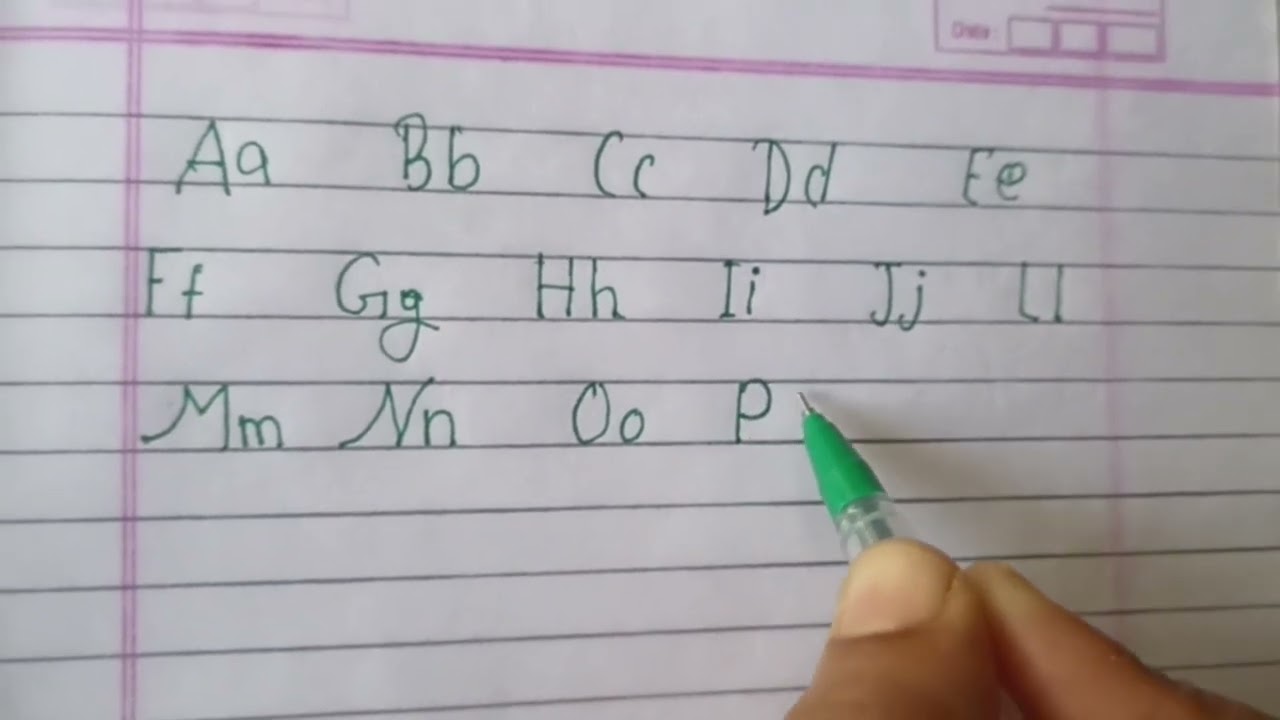 Date:
Aa Bb Cc Dd Ee
Ff Gg Hh Ii Jj Ll
Mm Nn Oo P